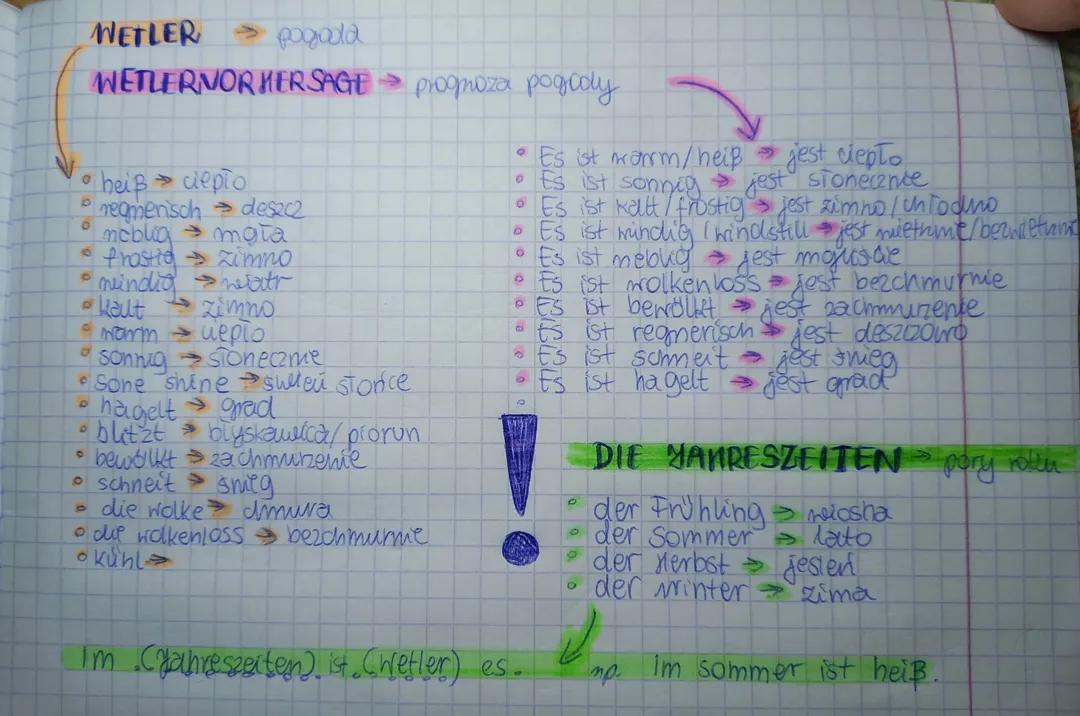 WETLER → pogoda
WETLERVORHERSAGE → prognoza pogody
• heiß → ciepło
• regnerisch → deszcz
• neblig → mgła
• frostig → zimno
• windig → wiatr
• kalt → zimno
• warm → ciepło
• sonnig → słonecznie
• sone shine → świeci słońce
• hagelt → grad
• blitzt → błyskawica/piorun
• bewölkt → zachmurzenie
• schneit → śnieg
• die wolke → chmura
• die wolkenloss → bezchmurnie
• kühl →
• Es ist warm/heiß → jest ciepło
• Es ist sonnig → jest słonecznie
• Es ist kalt/frostig → jest zimno/chłodno
• Es ist windig/windstill → jest wietrznie/bezwietrzni
• Es ist neblig → jest
• Es ist wolkenloss → jest bezchmurnie
• Es ist bewölkt → jest zachmurzenie
• Es ist regnerisch → jest deszczowo
• Es ist schneit → jest śnieg
• Es ist hagelt → jest grad
!
DIE JAHRESZEITEN → pory roku
• der Frühling → wiosna
• der Sommer → lato
• der Herbst → jesień
• der Winter → zima
Im .(Jahreszeiten). ist .(Wetler) es.
np. Im sommer ist heiß.